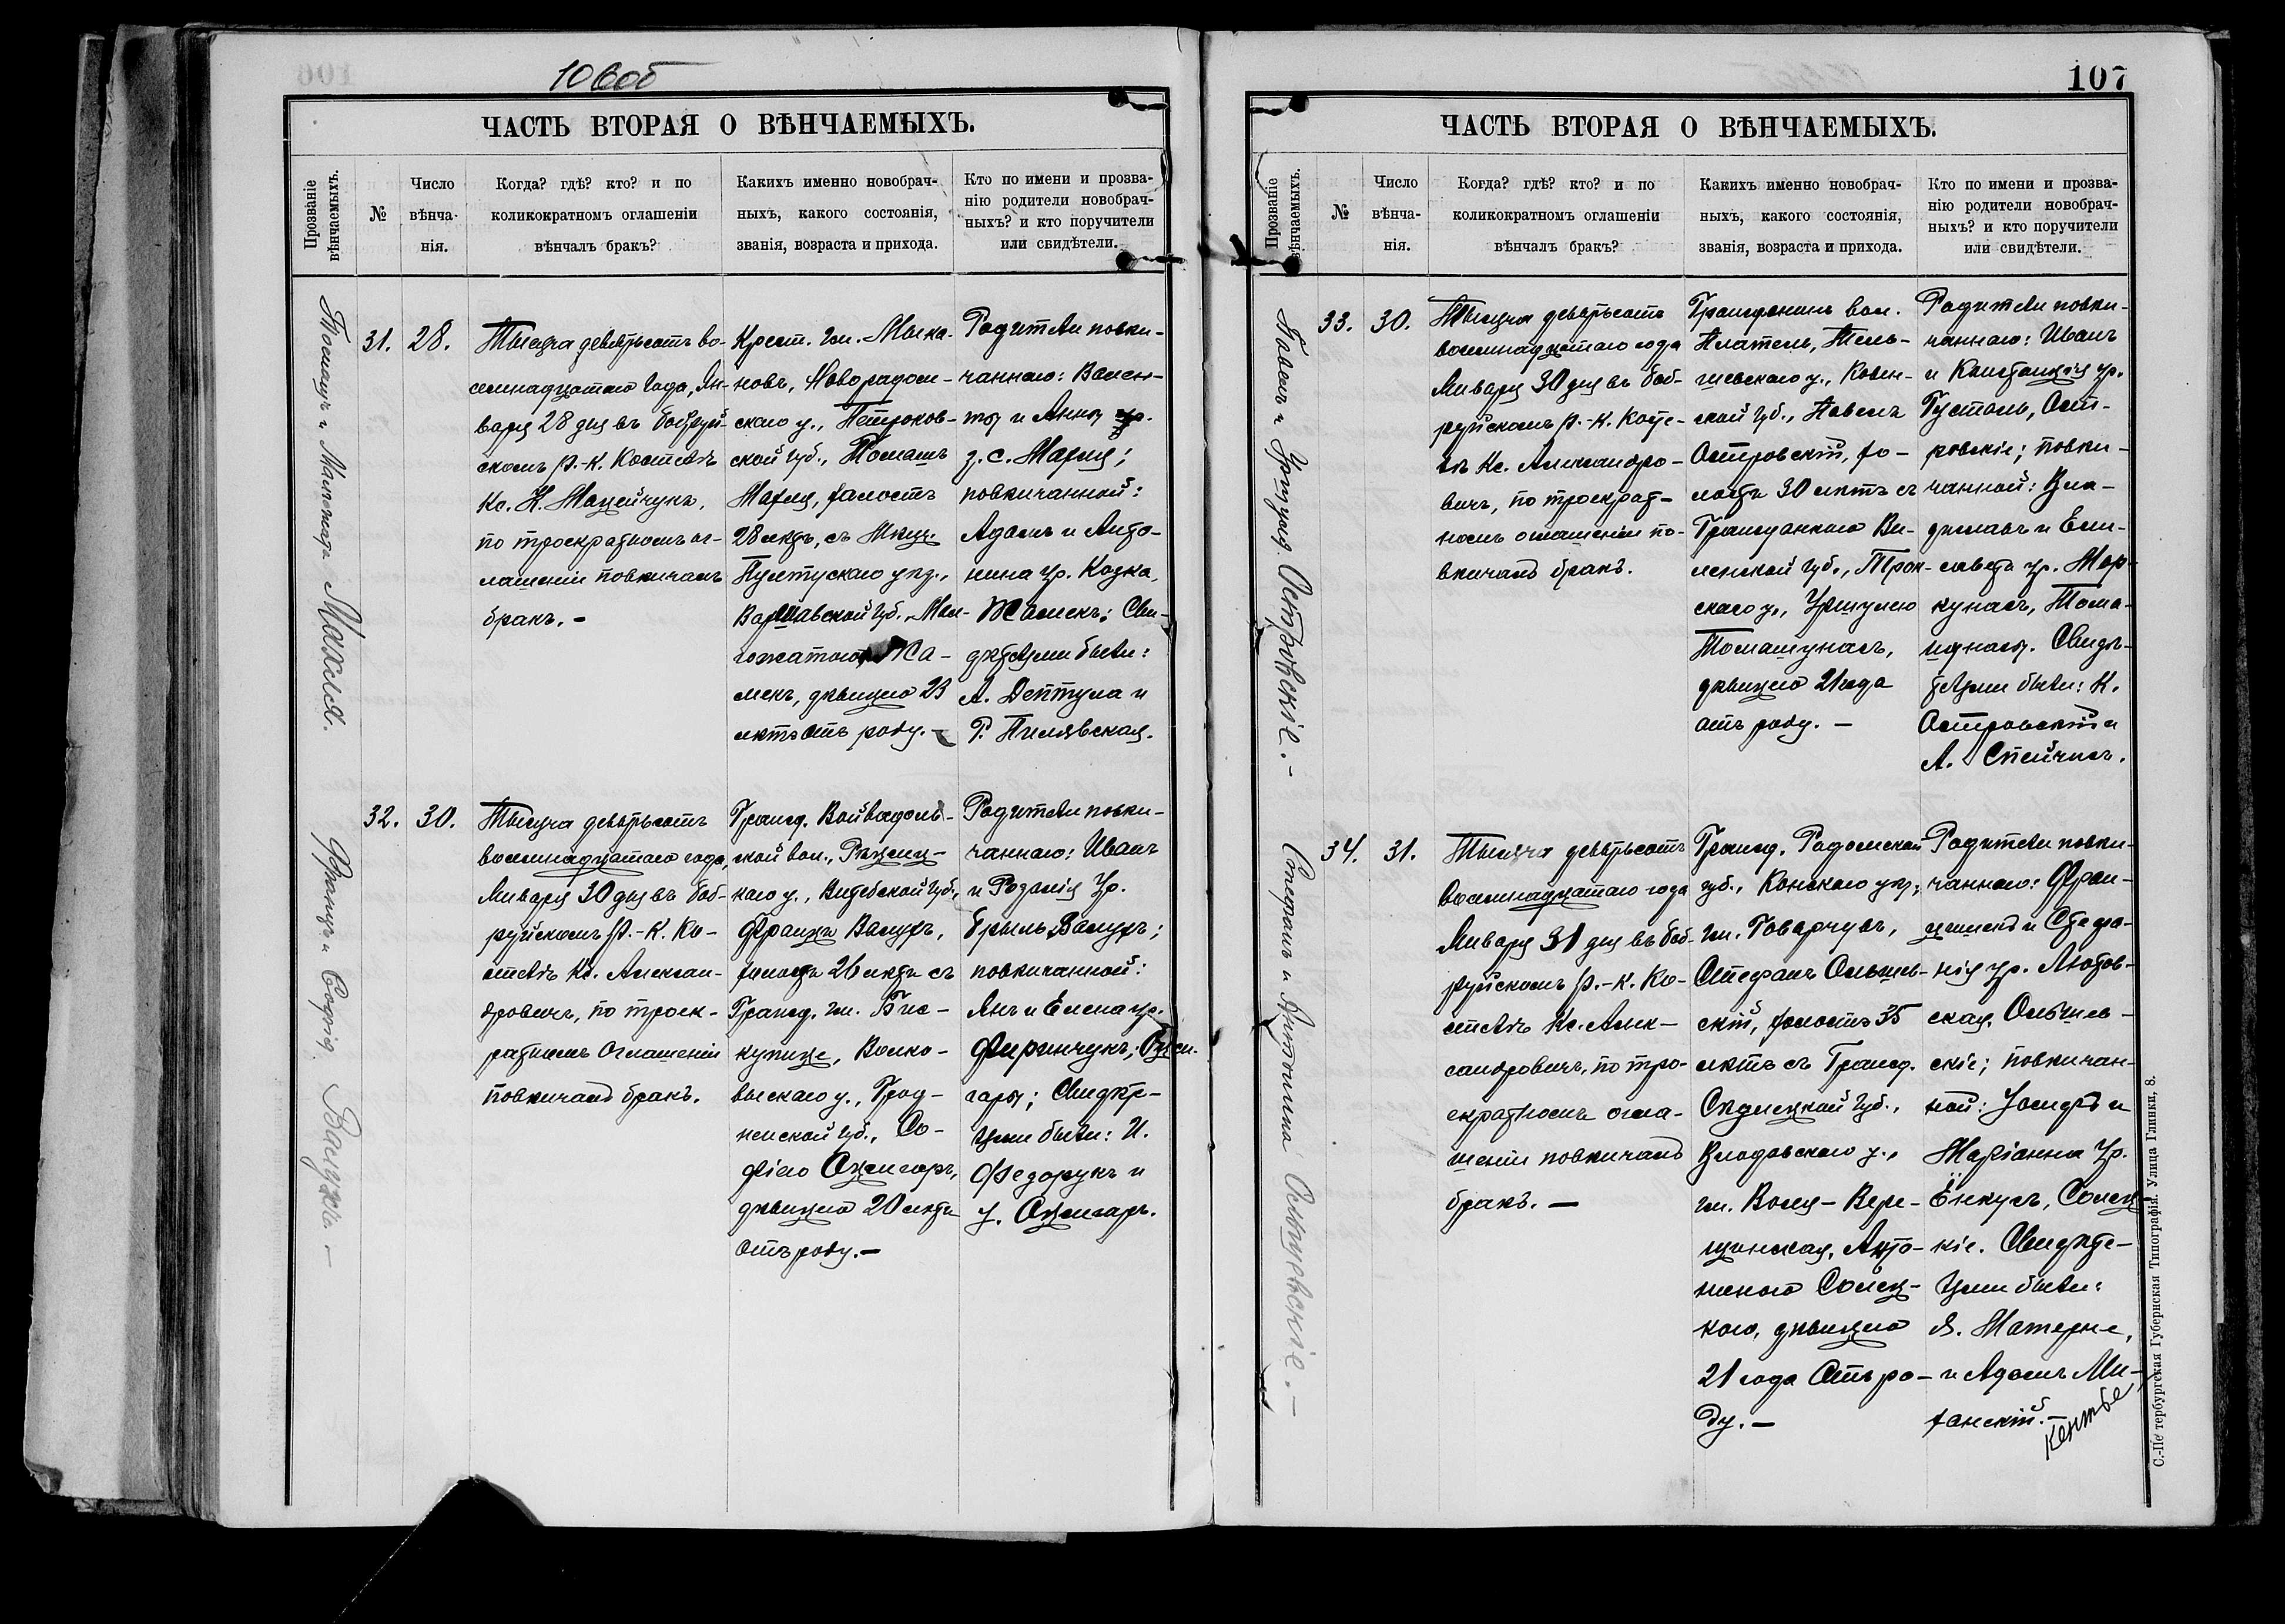 106об
ЧАСТЬ ВТОРАЯ О ВѢНЧАЕМЫХЪ.
Прозваніе
вѣнчаемыхъ.
№
Число
вѣнча-
нія.
Когда? гдѣ? кто? и по
коликократномъ оглашеніи
вѣнчалъ бракъ?
Какихъ именно новобрач-
ныхъ, какого состоянія,
званія, возраста и прихода.
Кто по имени и прозва-
нію родители новобрач-
ныхъ? и кто поручители
или свидѣтели.
31.
28.
Тысяча девятьсотъ во-
семнадцатаго года, Ян-
варя 28 дня въ Бобруй-
скомъ Р.-К. Костелѣ
Кс. Н. Мацейчукъ,
по троекратномъ ог-
лашеніи повѣнчалъ
бракъ. -
Крест. гм.
новъ, Новорадом-
скаго у., Петроков-
ской губ., Томашъ
холостъ
28 лѣтъ, съ
Пултускаго уѣз.,
Варшавской губ.,
мекъ, дѣвицею 23
лѣтъ отъ роду. -
Родители повѣн-
чаннаго: Вален-
ты и Анны ур.
повѣнчанной:
Адамъ и Анто-
нина ур. Козка,
Жамекъ; Сви-
дѣтелями были:
А. Дептула и
Р. Пилявская.
32.
30.
Францъ и Софія
Тысяча девятьсотъ
восемнадцатаго года,
Января 30 дня въ Боб-
руйскомъ Р.-К. Ко-
стелѣ Кс. Алексан-
дровичъ, по троек-
ратномъ оглашеніи
повѣнчалъ бракъ.
Гражд.
ской вол., Рѣжиц-
каго у., Витебской губ.,
Францъ Валужъ,
холостъ 26 лѣтъ съ
Гражд. гм. Бис-
купице, Волко-
выскаго у., Грод-
ненской губ., Со-
фіею
дѣвицею 20 лѣтъ
отъ роду. -
Родители повѣн-
чаннаго: Иванъ
и Розалія Ур.
Брыль, Валужъ;
повѣнчанной:
Янъ и Елена ур.
гары; Свидѣте-
лями были: И.
Федорукъ и
107
ЧАСТЬ ВТОРАЯ О ВѢНЧАЕМЫХЪ.
Прозваніе
вѣнчаемыхъ.
№
Число
вѣнча-
нія.
Когда? гдѣ? кто? и по
коликократномъ оглашеніи
вѣнчалъ бракъ?
Какихъ именно новобрач-
ныхъ, какого состоянія,
званія, возраста и прихода.
Кто по имени и прозва-
нію родители новобрач-
ныхъ? и кто поручители
или свидѣтели.
Павелъ и Уршуля Островскіе. -
33.
30.
Тысяча девятьсотъ
восемнадцатаго года
Января 30 дня въ Боб-
руйскомъ Р.-К. Косте-
лѣ Кс. Александро-
вичъ, по троекрат-
номъ оглашеніи по-
вѣнчалъ бракъ.
Гражданинъ вол.
Плателъ, Тель-
шевскаго у., Ковен-
ской губ., Павелъ
Островскій, хо-
лостъ 30 лѣтъ съ
Гражданкою Ви-
ленской губ., Трок-
скаго у., Уршулею
Томашунасъ,
дѣвицею 21 года
отъ роду. -
Родители повѣн-
чаннаго: Иванъ
и Констанція ур.
Густалъ, Ост-
ровскіе; повѣн-
чанной: Вла-
диславъ и Ели-
савета ур. Мар-
кунасъ, Тома-
шунасы. Свидѣ-
телями были: К.
Островскій и
А. Спейчисъ.
Стефанъ и Антонина Ольшевскіе. -
34.
31.
Тысяча девятьсотъ
восемнадцатаго года
Января 31 дня въ Боб-
руйскомъ Р.-К. Ко-
стелѣ Кс. Алек-
сандровичъ, по тро-
екратномъ огла-
шеніи повѣнчалъ
бракъ. -
Гражд. Радомской
губ., Конскаго уѣз.,
гм. Говарчувъ,
Стефанъ Ольшев-
скій, холостъ 35
лѣтъ съ Гражд.
Сѣдлецкой губ.,
Влодавскаго у.,
гм. Воля-Вере-
щинская, Анто-
ниною Солец-
кою, дѣвицею
21 года отъ ро-
ду. -
Родители повѣн-
чаннаго: Фран-
цишекъ и Стефа-
нія ур. Лютов-
ская, Ольшев-
скіе; повѣнчан-
ной: Іосифъ и
Маріанна Ур.
Солец-
кіе. Свидѣте-
лями были:
Я. Матерне,
и Адамъ Ми-
ханскій. -
С.-Петербургская Губернская Типографія. Улица Глинки, 8.